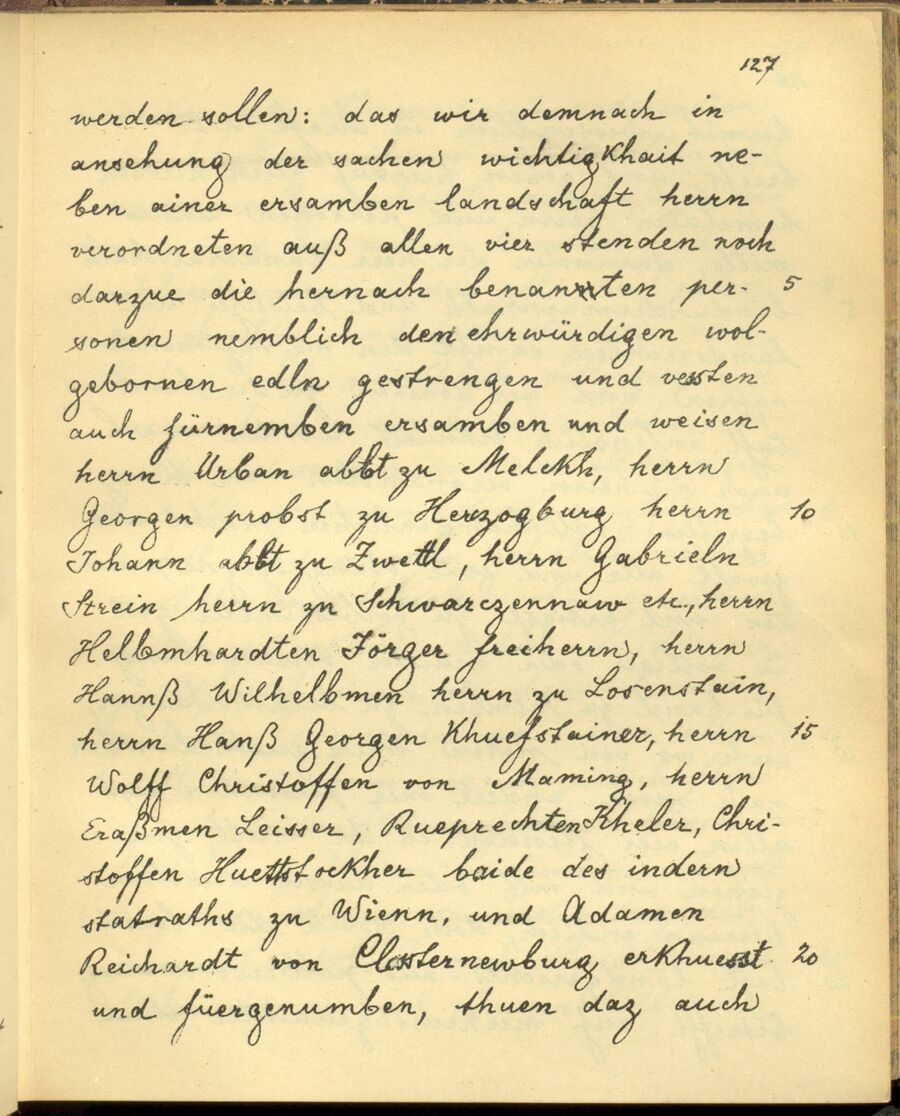 127
werden sollen: das wir demnach in
ansehung der sachen wichtigkhait ne-
ben ainer ersamben landschaft herrn
verordneten auß allen vier stenden noch
darzue die hernach benannten per- 5
sonen nemblich den ehrwürdigen wol-
gebornen edln gestrengen und vessten
auch fürnemben ersamben und weisen
herrn Urban abbt zu Melckh, herrn
Georgen probst zu Herzogburg herrn 10
Johann abbt zu Zwettl, herrn Gabrieln
Strein herrn zu Schwarczennaw etc., herrn
Helbmhardten Jörger freiherrn, herrn
Hannß Wilhelbmen herrn zu Losenstain,
herrn Hanß Georgen Khuefstainer, herrn 15
Wolff Christoffen von Maming, herrn
Eraßmen Leisser, Rueprechten Kheler, Chri-
stoffen Huettstockher baide des indern
statraths zu Wienn, und Adamen
Reichardt von Closternewburg erkhuesst 20
und füergenumben, thuen daz auch